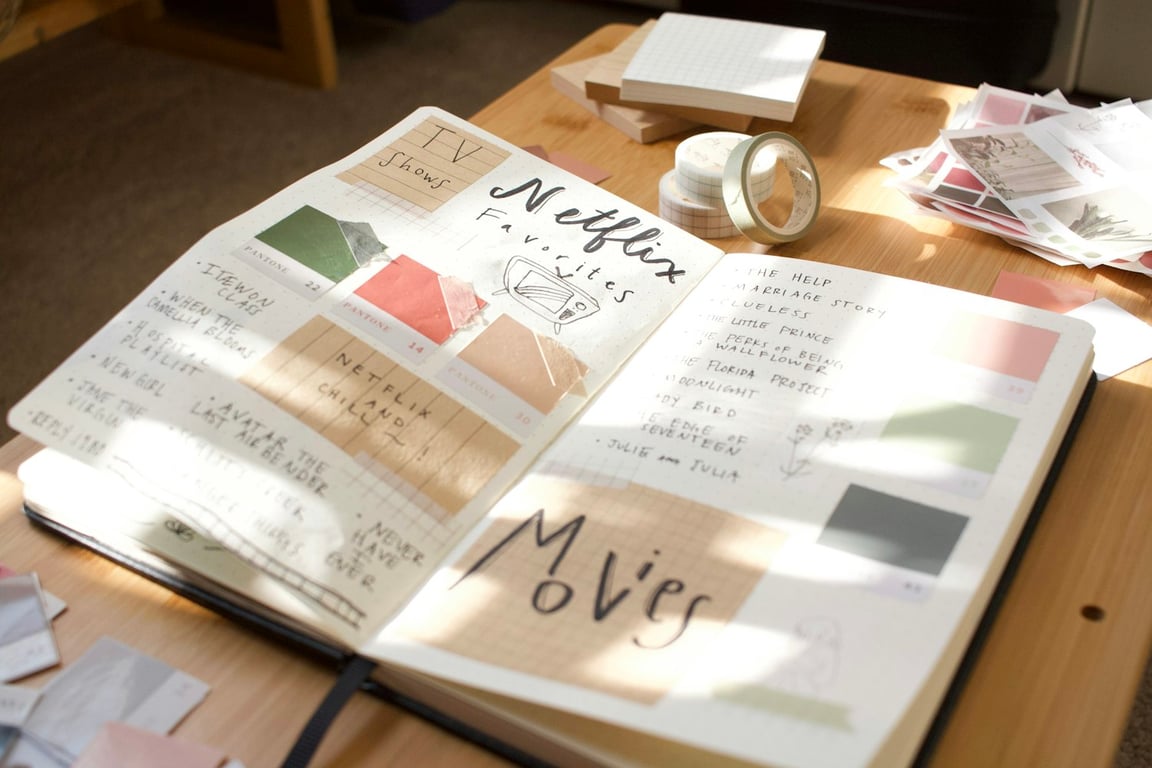 TV
Shows
Netflix
Favorites
PANTONE
22
PANTONE
14
PANTONE
30
• ITEWON
CLASS
• WHEN THE
CAMELLIA BLOOMS
• HOSPITAL
PLAYLIST
• NEW GIRL
• JANE THE
VIRGIN
• REPLY 1988
NETFLIX
AND
CHILL~!
• AVATAR THE
LAST AIRBENDER
• NEVER
HAVE
I
EVER
• THE HELP
• MARRIAGE STORY
CLUELESS
THE LITTLE PRINCE
THE PERKS OF BEING
A WALLFLOWER
THE FLORIDA PROJECT
MOONLIGHT
ADY BIRD
E EDGE OF
SEVENTEEN
• JULIE AND JULIA
Movies